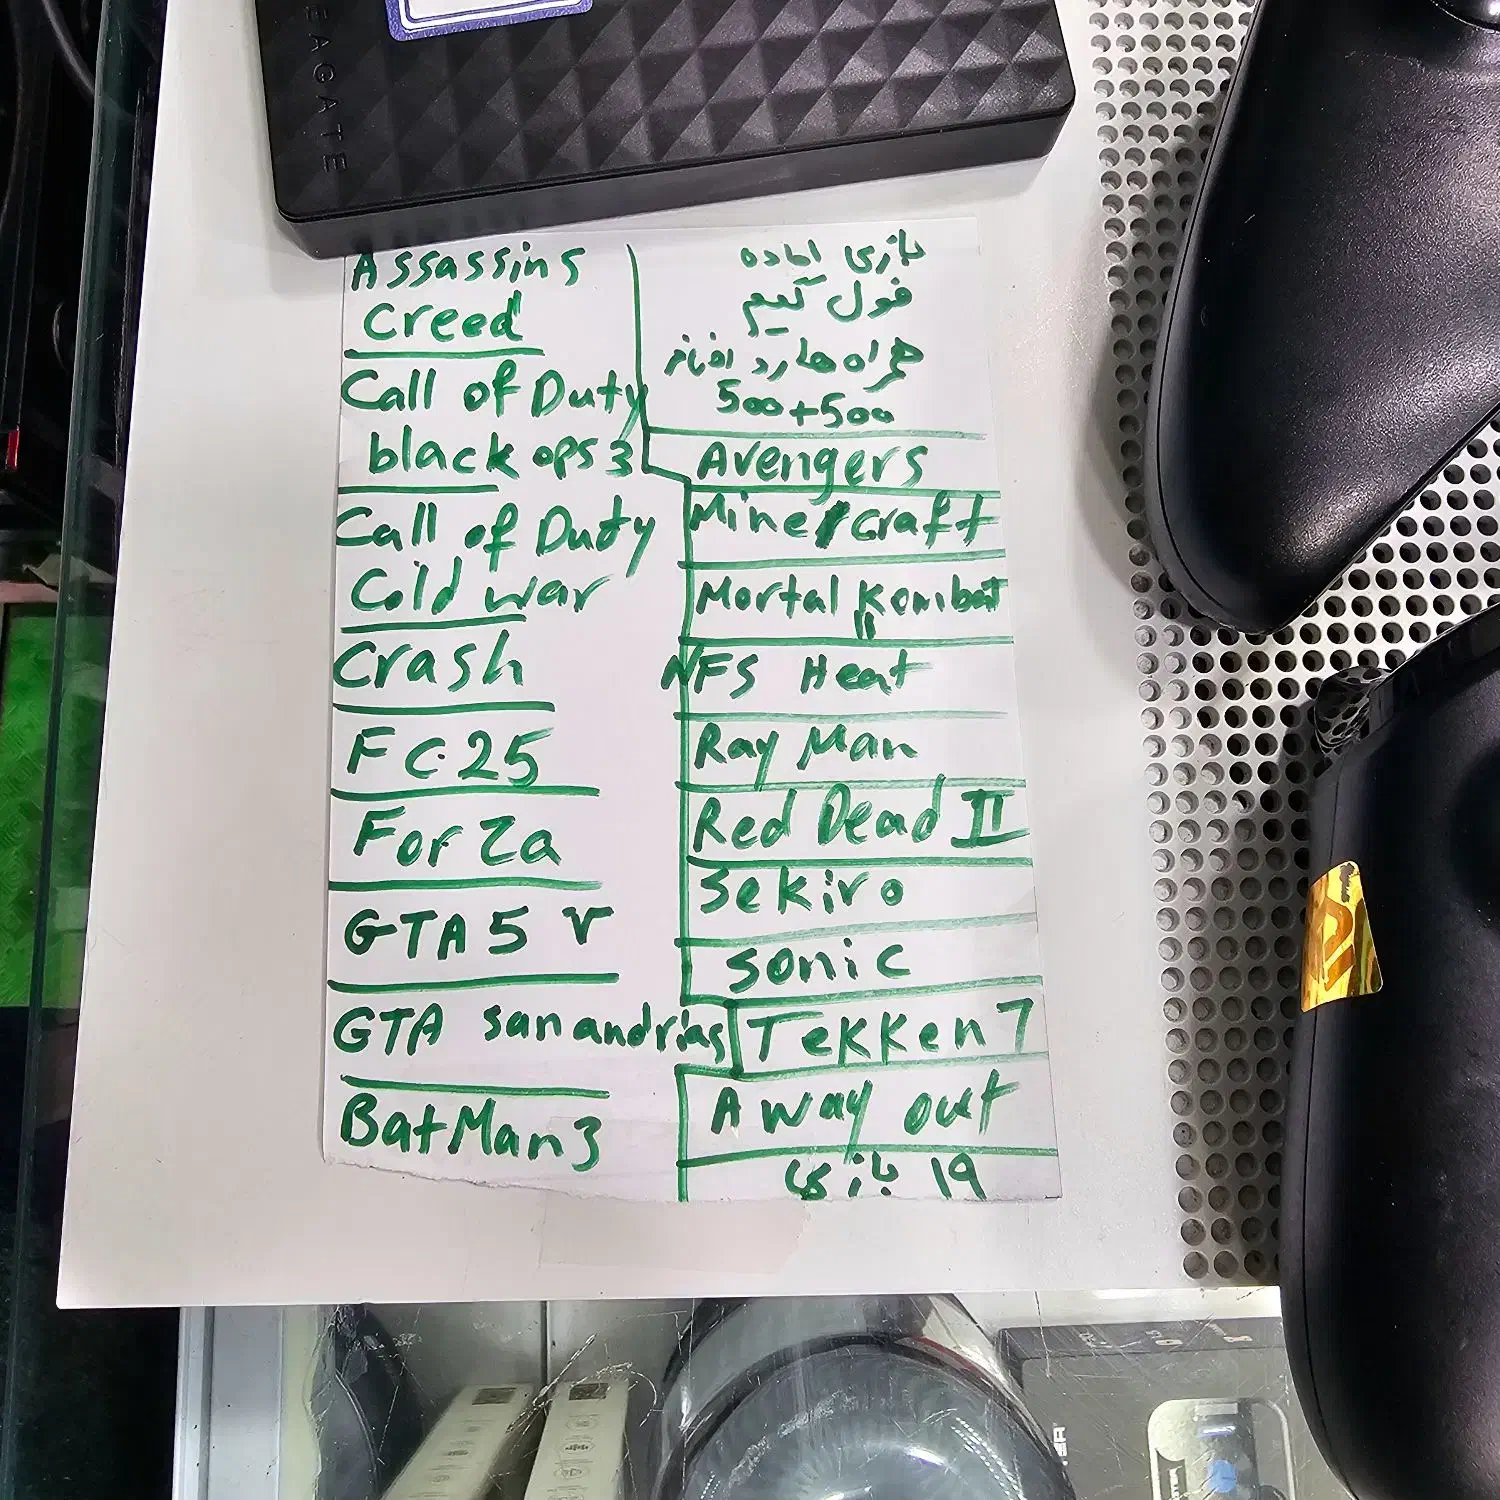 EAGATE
Assassins
Creed
Call of Duty
black ops 3
Call of Duty
Cold war
Crash
FC.25
Forza
GTA 5 V
GTA sanandrias
BatMan3
بازی اماده
فول گیم
همراه هارد اضافه
500+500
Avengers
Minecraft
Mortal Kombat
11
NFS Heat
Ray Man
Red Dead II
Sekiro
Sonic
Tekken 7
A way out
۱۹ بازی